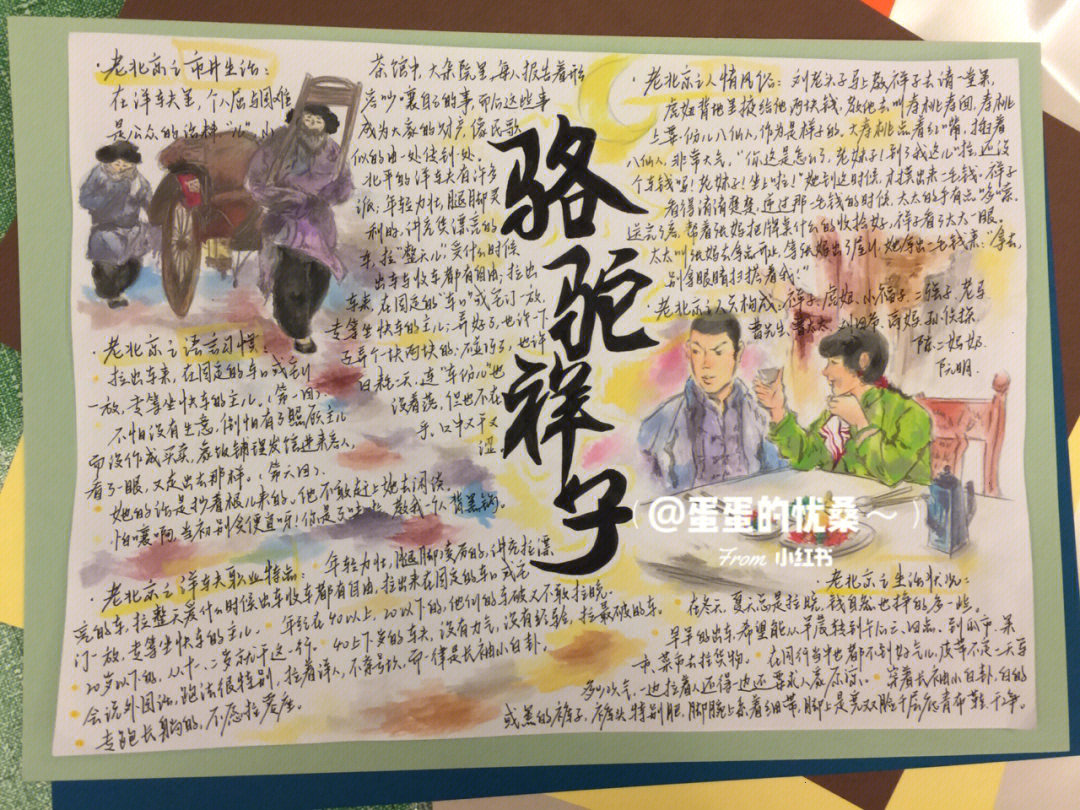 骆驼祥子
·老北京之市井生活:
在洋车夫里,个人的委屈与困难
是公众的话料,“
茶馆中,大杂院里,每人报告着形
容着或吵嚷自己的事,而后这些事
成为大家的财产,像民歌
似的由一处传到一处。
北平的洋车夫有许多
派:年轻力壮,腿脚灵
利的,讲究赁漂亮的
车,拉“整天儿”,爱什么时候
出车与收车都有自由;拉出
车来,在固定的“车口”或宅门一放,
专等坐快车的主儿;弄好了,也许一下
子弄个一块两块的;碰巧了,也许
白耗一天,连“车份儿”也
没着落,但也不在
乎。
·老北京之语言习惯:
拉出车来,在固定的车口或宅门
一放,专等坐快车的主儿。(第一回)
不怕没有生意,倒怕有了照顾主儿
而没作成买卖,
看了一眼,又走出去那样。(第六回)
她的话是抄着根儿来的,他不敢赶上她去闲谈。
怕嚷啊,当初别贪便宜呀!你是了味啦,教我一个人背黑锅,
·老北京之洋车夫职业特点:
年轻力壮,腿脚凌厉的,讲究拉漂
亮的车,拉整天爱什么时候出车收车都有自由,拉出来在固定的车口或宅
门一放,专等坐快车的主儿。
年轻在40以上,20以下的,他们的车破又不敢拉晚。
20岁以下的,从十一、二岁就干这一行。
40上下岁的车夫,没有力气,没有经验,拉最破的车。
会说外国话,跑法很特别,拉着洋人,不穿号坎,而一律是长袖小白卦,
专跑长趟的,不愿拉零座。
·老北京之人情风俗:刘老头子马上教祥子去请一堂寿桃,
虎妞背地里掖给他两块钱,教他去叫寿桃寿面,寿桃
上要一份儿八仙人,作为是祥子的。大寿桃点着红嘴,插着
八仙人,非常大气。“你这是怎么了,老妹子!到了我这儿啦,还没
个车钱吗!老妹子!坐上啦!”她到这时候,才摸出来一毛钱。祥子
看得清清楚楚,递过那一毛钱的时候,太太的手有点哆嗦。
送完了客,帮着张妈把牌桌什么的收拾好,祥子看了太太一眼。
太太叫张妈去拿点开水,等张妈出了屋门,她拿出一毛钱来:“拿去,
别拿眼睛扫搭着我!”
·老北京之人员构成:祥子、虎妞、小福子、二强子、老马、
曹先生、曹太太、刘四爷、高妈、孙侦探
陈二奶奶
阮明.
(@蛋蛋的忧桑~)
From 小红书
·老北京之生活状况:
在冬天、夏天总是拉晚,钱自然也挣的多一些。
早早的出车,希望能从早晨转到午后三、四点,
市、菜市去拉货物。
在同行当中也都不到好气儿,
多少火气,一边拉着人还得一边
穿着长袖小白卦,白的
或黑的裤子,裤头特别肥,脚腕上系着细带,脚上是宽双脸千层底青布鞋,干净。